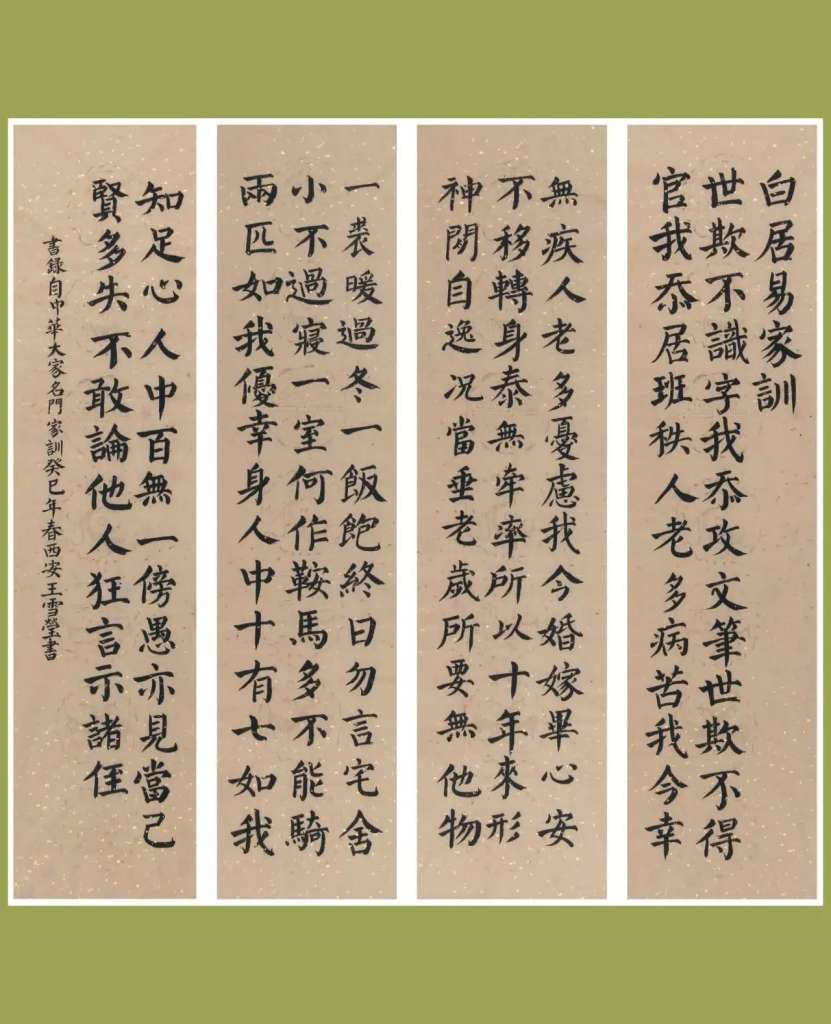 白居易家訓
世欺不識字我忝攻文筆世欺不得
官我忝居班秩人老多病苦我今幸
無疾人老多憂慮我今婚嫁畢心安
不移轉身泰無牵率所以十年來形
神閑自逸况當垂老歲所要無他物
一裘暖過冬一飯飽終日勿言宅舍
小不過寢一室何作鞍馬多不能騎
兩匹如我優幸身人中十有七如我
知足心人中百無一傍愚亦見當己
賢多失不敢論他人狂言示諸侄
書錄自中華大家名門家訓癸巳年春西安王雪瑩書